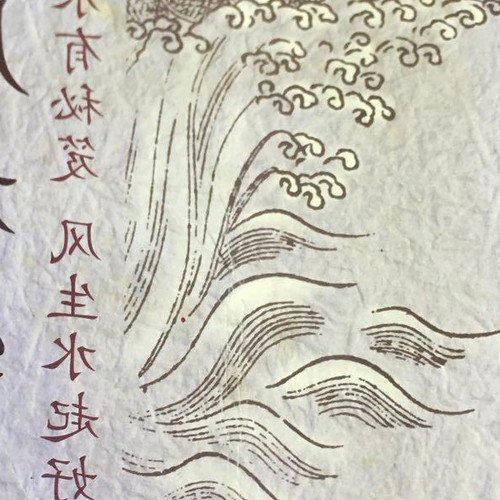 有秘笈 风生水起好